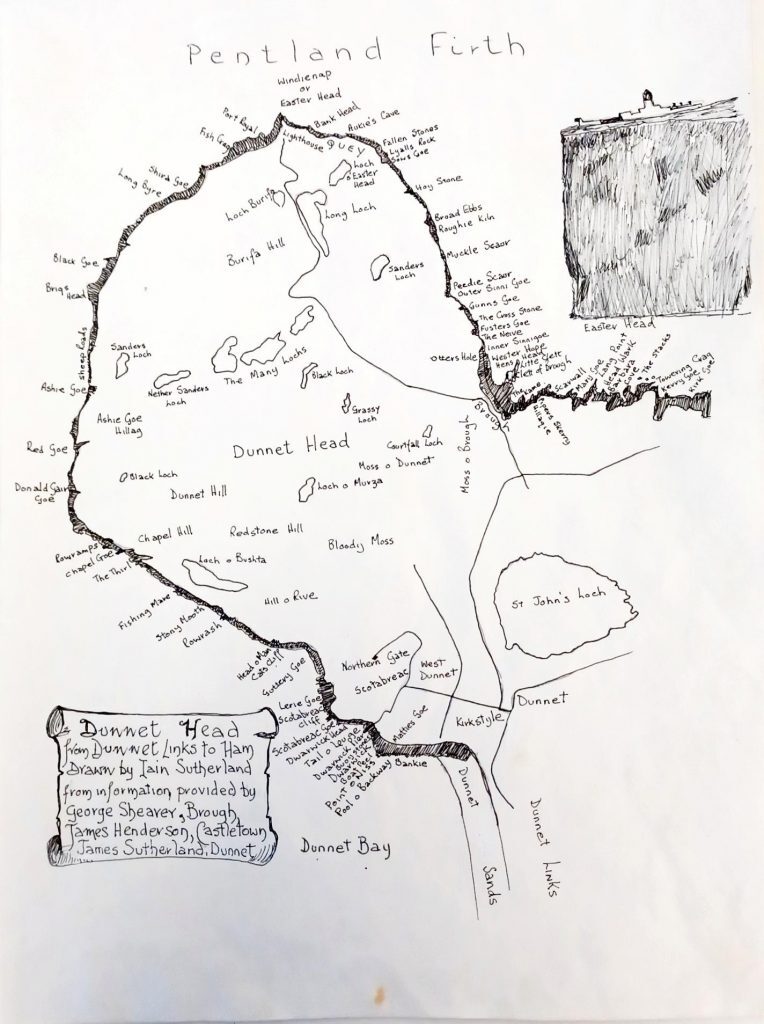 Pentland Firth
Windienap
or
Easter Head
Port Royal
Fish Craig
Bank Head
Aukie's Cave
Lighthouse
QUEY
Fallen Stones
Lyalls Rock
Sows Goe
Shira Goe
Long Byre
Loch
o Easter
Head
Hoy Stone
Loch Burifa
Long Loch
Broad Ebbs
Roughie Kiln
Burifa Hill
Muckle Scaor
Black Goe
Sanders
Loch
Brigs
Head
Peedie Scaor
Outer Sinni Goe
Gunns Goe
The Cross Stone
Fusters Goe
The Neive
Inner Sinnigoe
Easter Head
Otters Hole
Wester Hope
Hens Head
Little Clett
Clett of Brough
Sheep Roads
Sanders
Loch
The Many Lochs
Nether Sanders
Loch
Black Loch
Scarwall
Long Point
The Stacks
Towering Craig
Kerry Goe
Kirk Goe
Ashie Goe
Ashie Goe
Hillag
Grassy
Loch
Brough
Red Goe
Dunnet Head
Courtfall Loch
Moss o Brough
Moss o Dunnet
Black Loch
Loch o Murza
Donald Gair
Goe
Dunnet Hill
Chapel Hill
Redstone Hill
Bloody Moss
Rowramps
Chapel Goe
The Thirl
Loch o Bushta
St John's Loch
Fishing Mare
Hill o Rive
Stony Mooth
Rowrash
Head o Man
Cats Cliff
Gutsery Goe
Northern Gate
Scotabreac
West
Dunnet
Dunnet
Lerie Goe
Scotabreac
Cliff
Scotabreac Goe
Dwarwick Head
Matties Goe
Kirkstyle
Point o Ness
Pool o Backaway
Bankie
Dunnet Head
from Dunnet Links to Ham
Drawn by Iain Sutherland
from information provided by
George Shearer, Brough,
James Henderson, Castletown
James Sutherland, Dunnet
Dunnet Bay
Dunnet
Sands
Dunnet Links